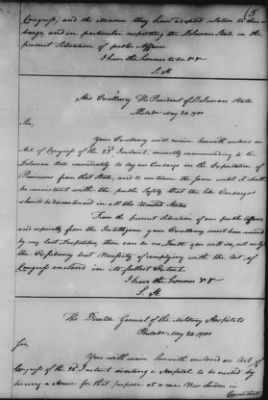 Congress, and the Measures they have adopted relative to an Em-
bargo, and in particular respecting the Delaware State in the
present Situation of public Affairs
I have the Honour to be &c
S. H
His Excellency The President of Delaware State
Philada May 24 1780
Sir,
Your Excellency will receive herewith enclosed an
Act of Congress of the 23d Instant, earnestly recommending to the
Delaware State immediately to lay an Embargo on the Exportation of
Provisions from that State, and to continue the same until it shall
be consistent with the public Safety that the like Embargo
should be discontinued in all the United States
From the present Situation of our public Affairs
and especially from the Intelligence your Excellency must have received
by my last Dispatches, there can be no Doubt you will see, not only
the Expediency but Necessity of complying with the Act of
Congress enclosed in its fullest Extent.
I have the Honour &c
S. H
The Director General of the Military Hospitals
Philada May 24 1780
Sir,
You will receive herewith enclosed an Act of
Congress of the 22d Instant directing a Hospital to be erected by
hiring a House for that purpose at or near New London in
Connecticut